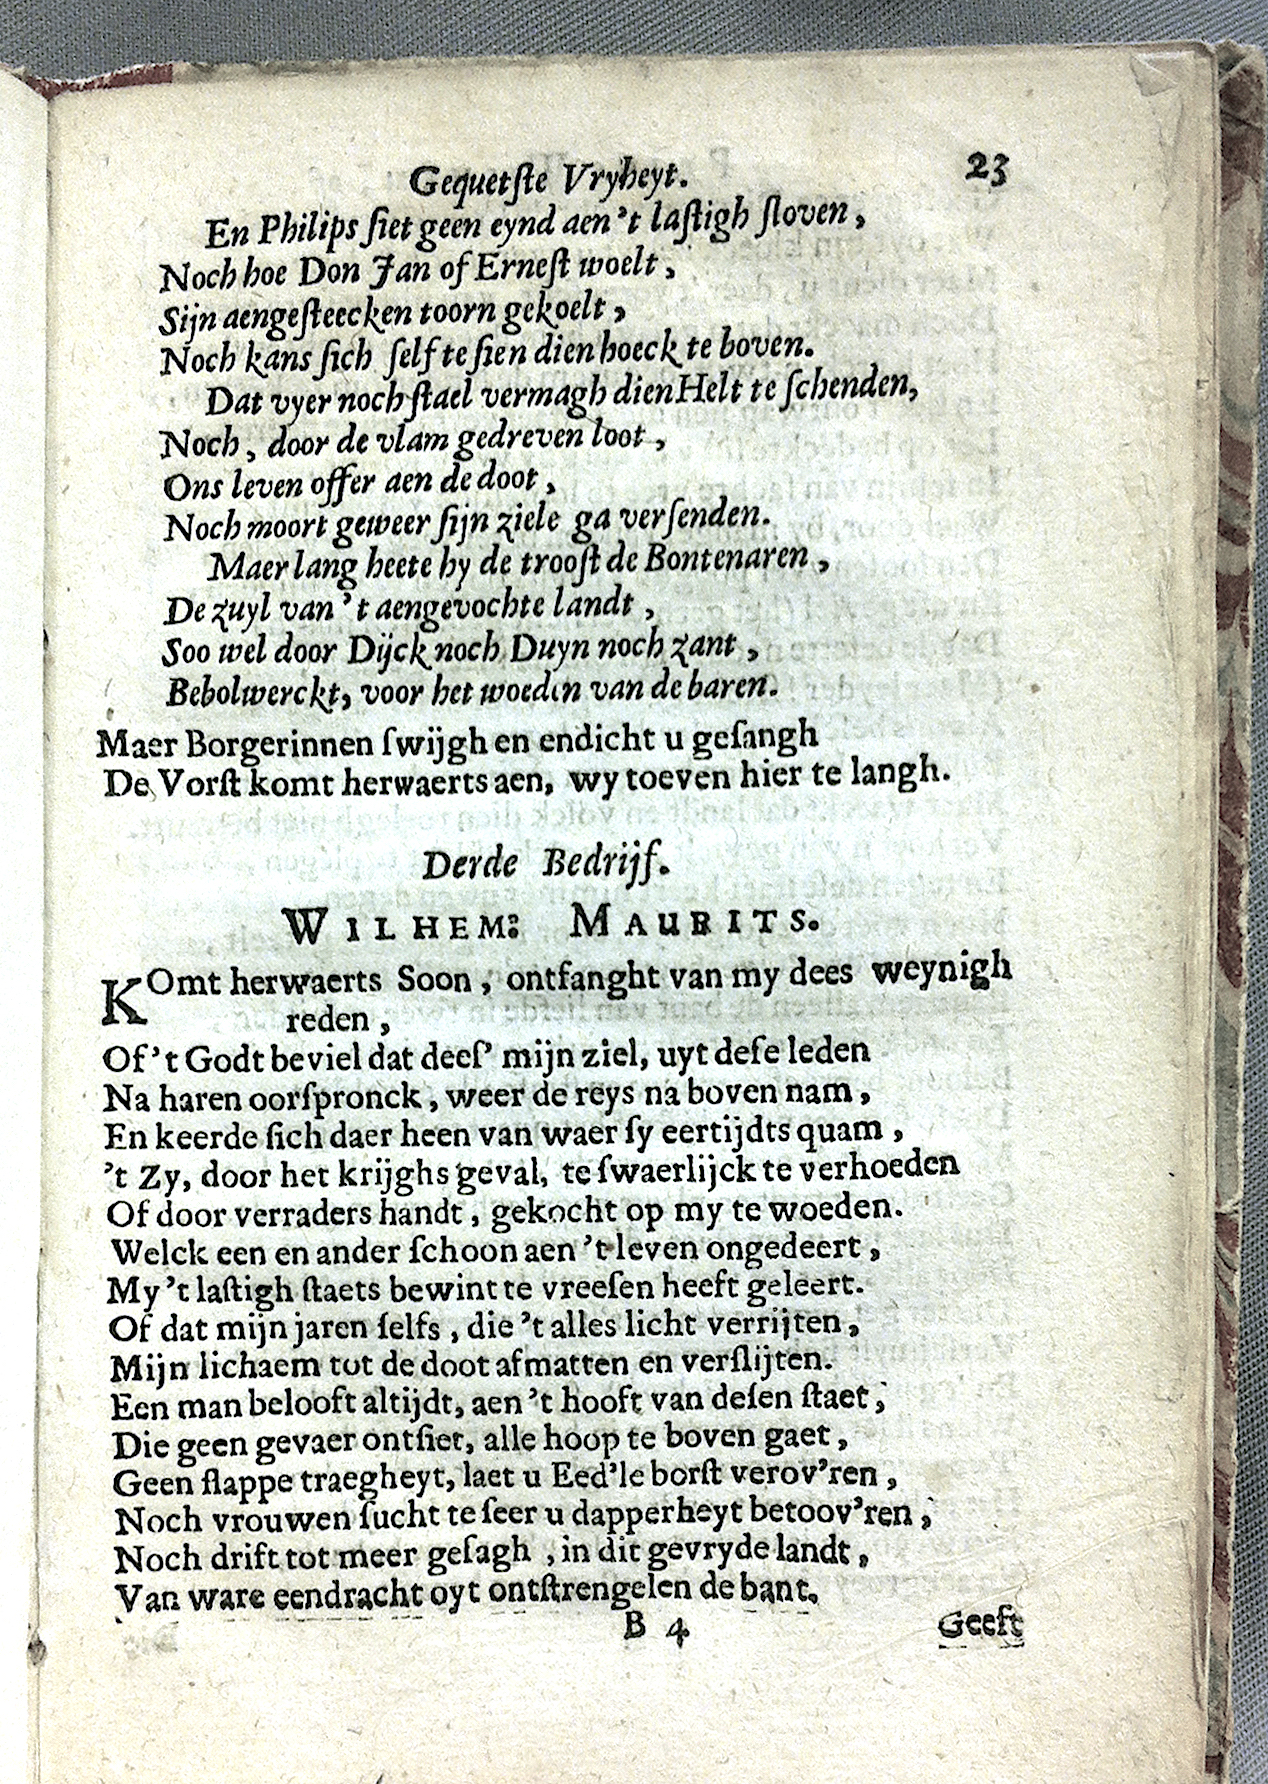 Gequetſte Vryheyt. 23
En Philips ſiet geen eynd aen 't laſtigh ſloven,
Noch hoe Don Jan of Erneſt woelt,
Sijn aengeſteecken toorn gekoelt,
Noch kans ſich ſelf te ſien dien hoeck te boven.
Dat vyer noch ſtael vermagh dien Helt te ſchenden,
Noch, door de vlam gedreven loot,
Ons leven offer aen de doot,
Noch moort geweer ſijn ziele ga verſenden.
Maer lang heete hy de trooſt de Bontenaren,
De zuyl van 't aengevochte landt,
Soo wel door Dijck noch Duyn noch zant,
Bebolwerckt, voor het woeden van de baren.
Maer Borgerinnen ſwijgh en endicht u geſangh
De Vorſt komt herwaerts aen, wy toeven hier te langh.
Derde Bedrijf.
WILHEM: MAURITS.
KOmt herwaerts Soon, ontfanght van my dees weynigh
reden,
Of 't Godt beviel dat deeſ' mijn ziel, uyt deſe leden
Na haren oorſpronck, weer de reys na boven nam,
En keerde ſich daer heen van waer ſy eertijdts quam,
't Zy, door het krijghs geval, te ſwaerlijck te verhoeden
Of door verraders handt, gekocht op my te woeden.
Welck een en ander ſchoon aen 't leven ongedeert,
My 't laſtigh ſtaets bewint te vreeſen heeft geleert.
Of dat mijn jaren ſelfs, die 't alles licht verrijten,
Mijn lichaem tot de doot afmatten en verſlijten.
Een man belooft altijdt, aen 't hooft van deſen ſtaet,
Die geen gevaer ontſiet, alle hoop te boven gaet,
Geen ſlappe traegheyt, laet u Eed'le borſt verov'ren,
Noch vrouwen ſucht te ſeer u dapperheyt betoov'ren,
Noch drift tot meer geſagh, in dit gevryde landt,
Van ware eendracht oyt ontſtrengelen de bant.
B 4 Geeft